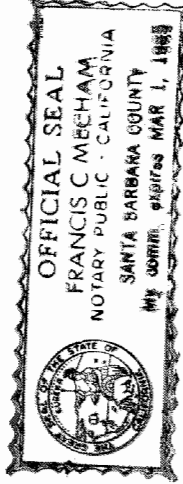 OFFICIAL SEAL
FRANCIS C MECHAM
NOTARY PUBLIC - CALIFORNIA
SANTA BARBARA COUNTY
My comm. expires MAR 1,